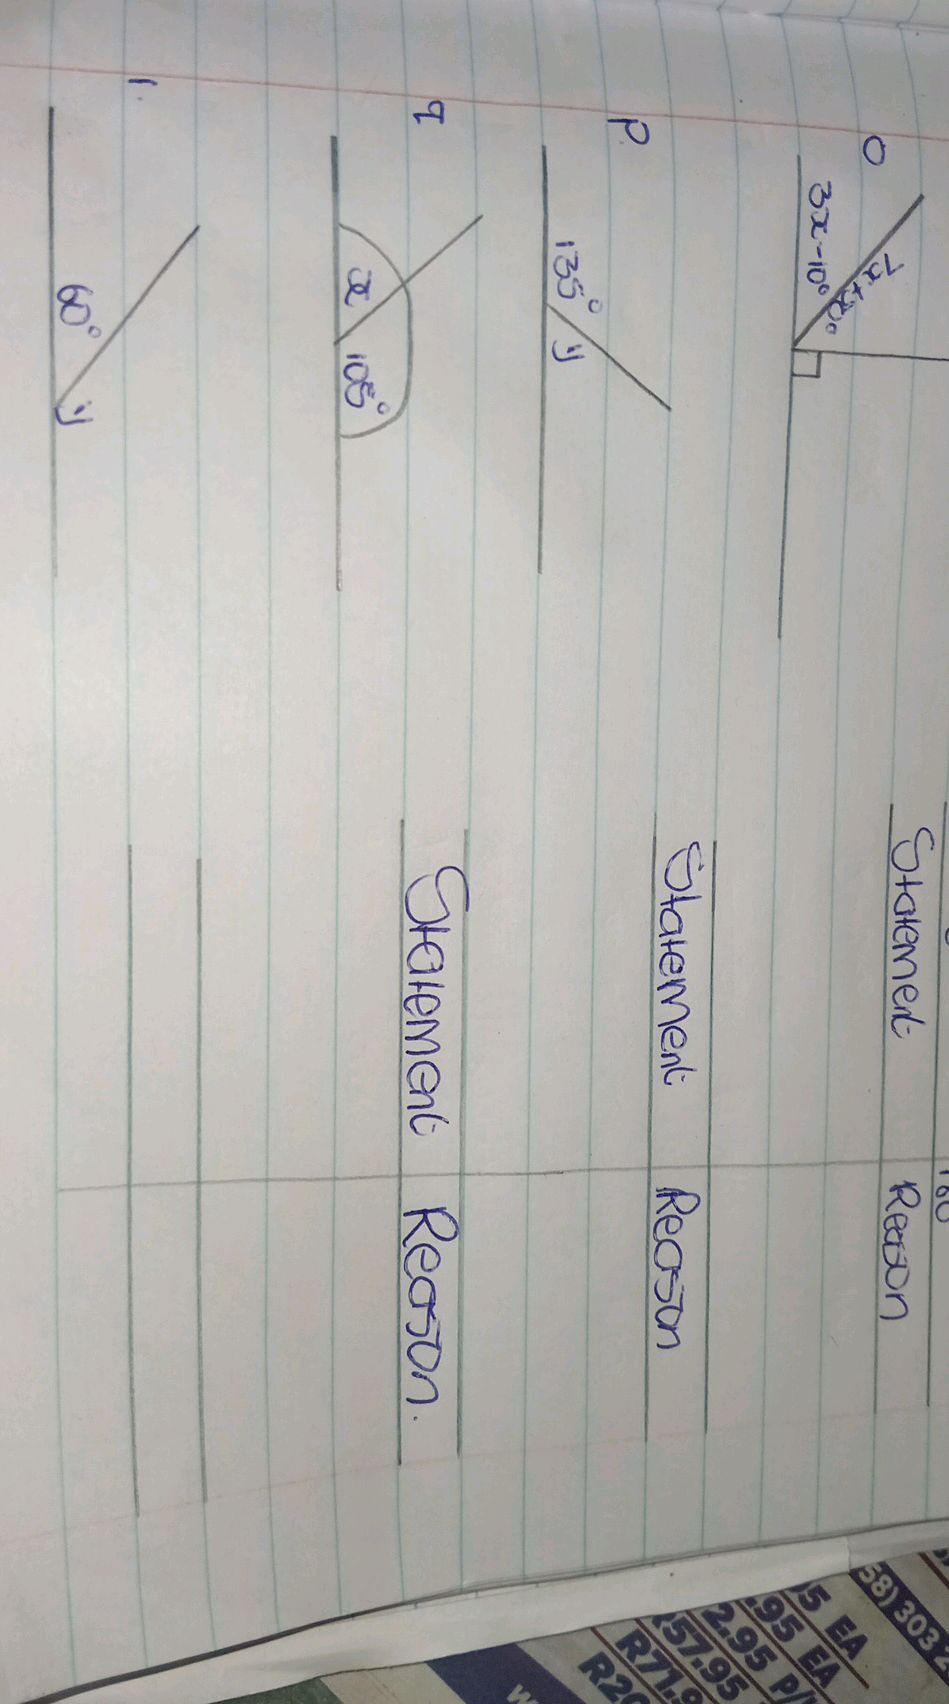 Statement Reason
o
3x-10°
Statement Reason
p.
135° y
Statement Reason.
q
x 105°
r.
60° y
58) 303 2
5 EA
.95 EA
2.95 P/
R57.95
R71.9